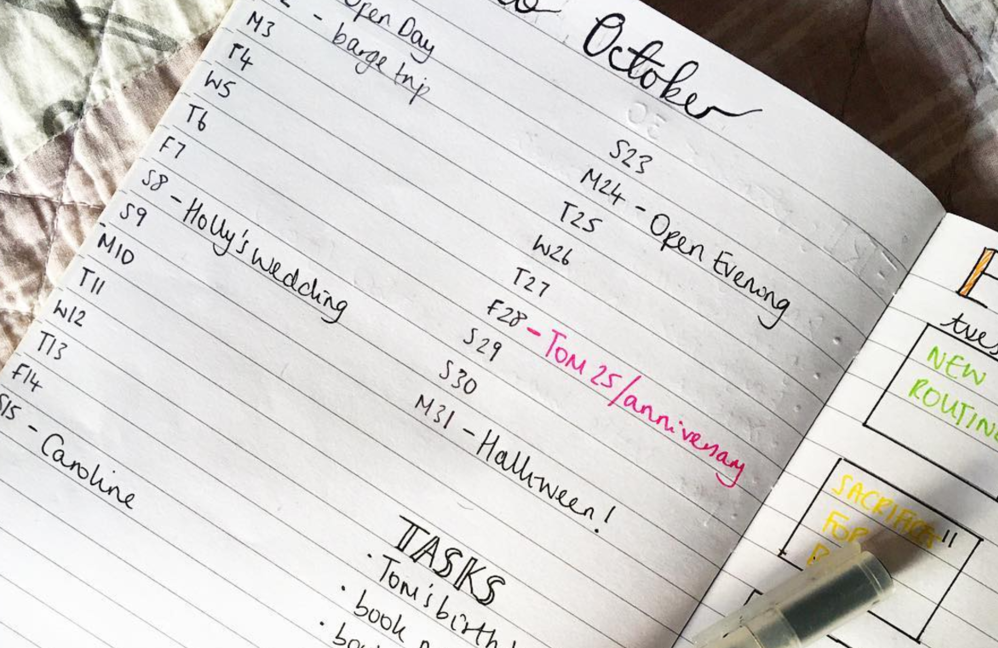 October
Open Day
- barge trip
M3
T4
W5
T6
F7
S8 - Holly's wedding
S9
M10
T11
W12
T13
F14
S15 - Caroline
S23
M24 - Open Evening
T25
W26
T27
F28 - TOM 25/anniversary
S29
S30
M31 - Halloween!
TASKS
· Tom's birth
· book
NEW
ROUTIN
FOR